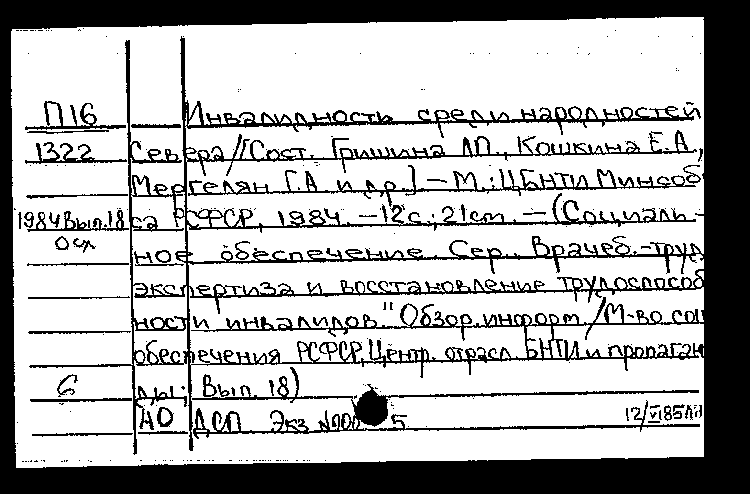 П16 Инвалидность среди народностей
1322 Севера//[Сост. Гришина Л.П., Кошкина Е.А,
Мергелян Г.А и др.] – М.: ЦБНТИ Минсоб
1984 Вып.18 са РСФСР, 1984. – 12с.; 21см. – (Социаль-
ное обеспечение. Сер. Врачеб.-труд
экспертиза и восстановление трудоспособ
ности инвалидов." Обзор. информ./М-во соц
обеспечения РСФСР, Центр. отрасл. БНТИ и пропаган
6 ды; Вып. 18)
НО ДСП Экз №00 5 12/VI85